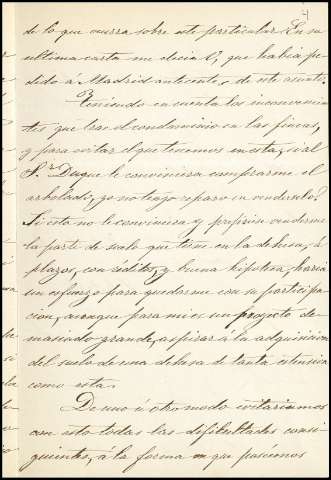 de lo que ocurra sobre este particular. En su
ultima carta me decia V, que habia pe-
dido á Madrid antecente, de este asunto.
Teniendo en cuenta los inconvenien-
tes que trae el condominio en las fincas,
y para evitar el que tenemos en esta, ¿si al
Sr. Duque le conviniera comprarme el
arbolado, yo no tengo reparo en venderselo?
Si esto no le conviniera y prefiriese venderme
la parte de suelo que tiene en la dehesa, á
plazos, con rédito, y buena hipoteca, haria
un esfuerzo para quedarme con su participa-
cion, aunque para mi es un proyecto de-
masiado grande, aspirar á la adquisicion
del suelo de una dehesa de tanta estension
como esta.
De uno ú otro modo evitariamos
con esto todas las dificultades consi-
guientes, á la forma en que poseemos